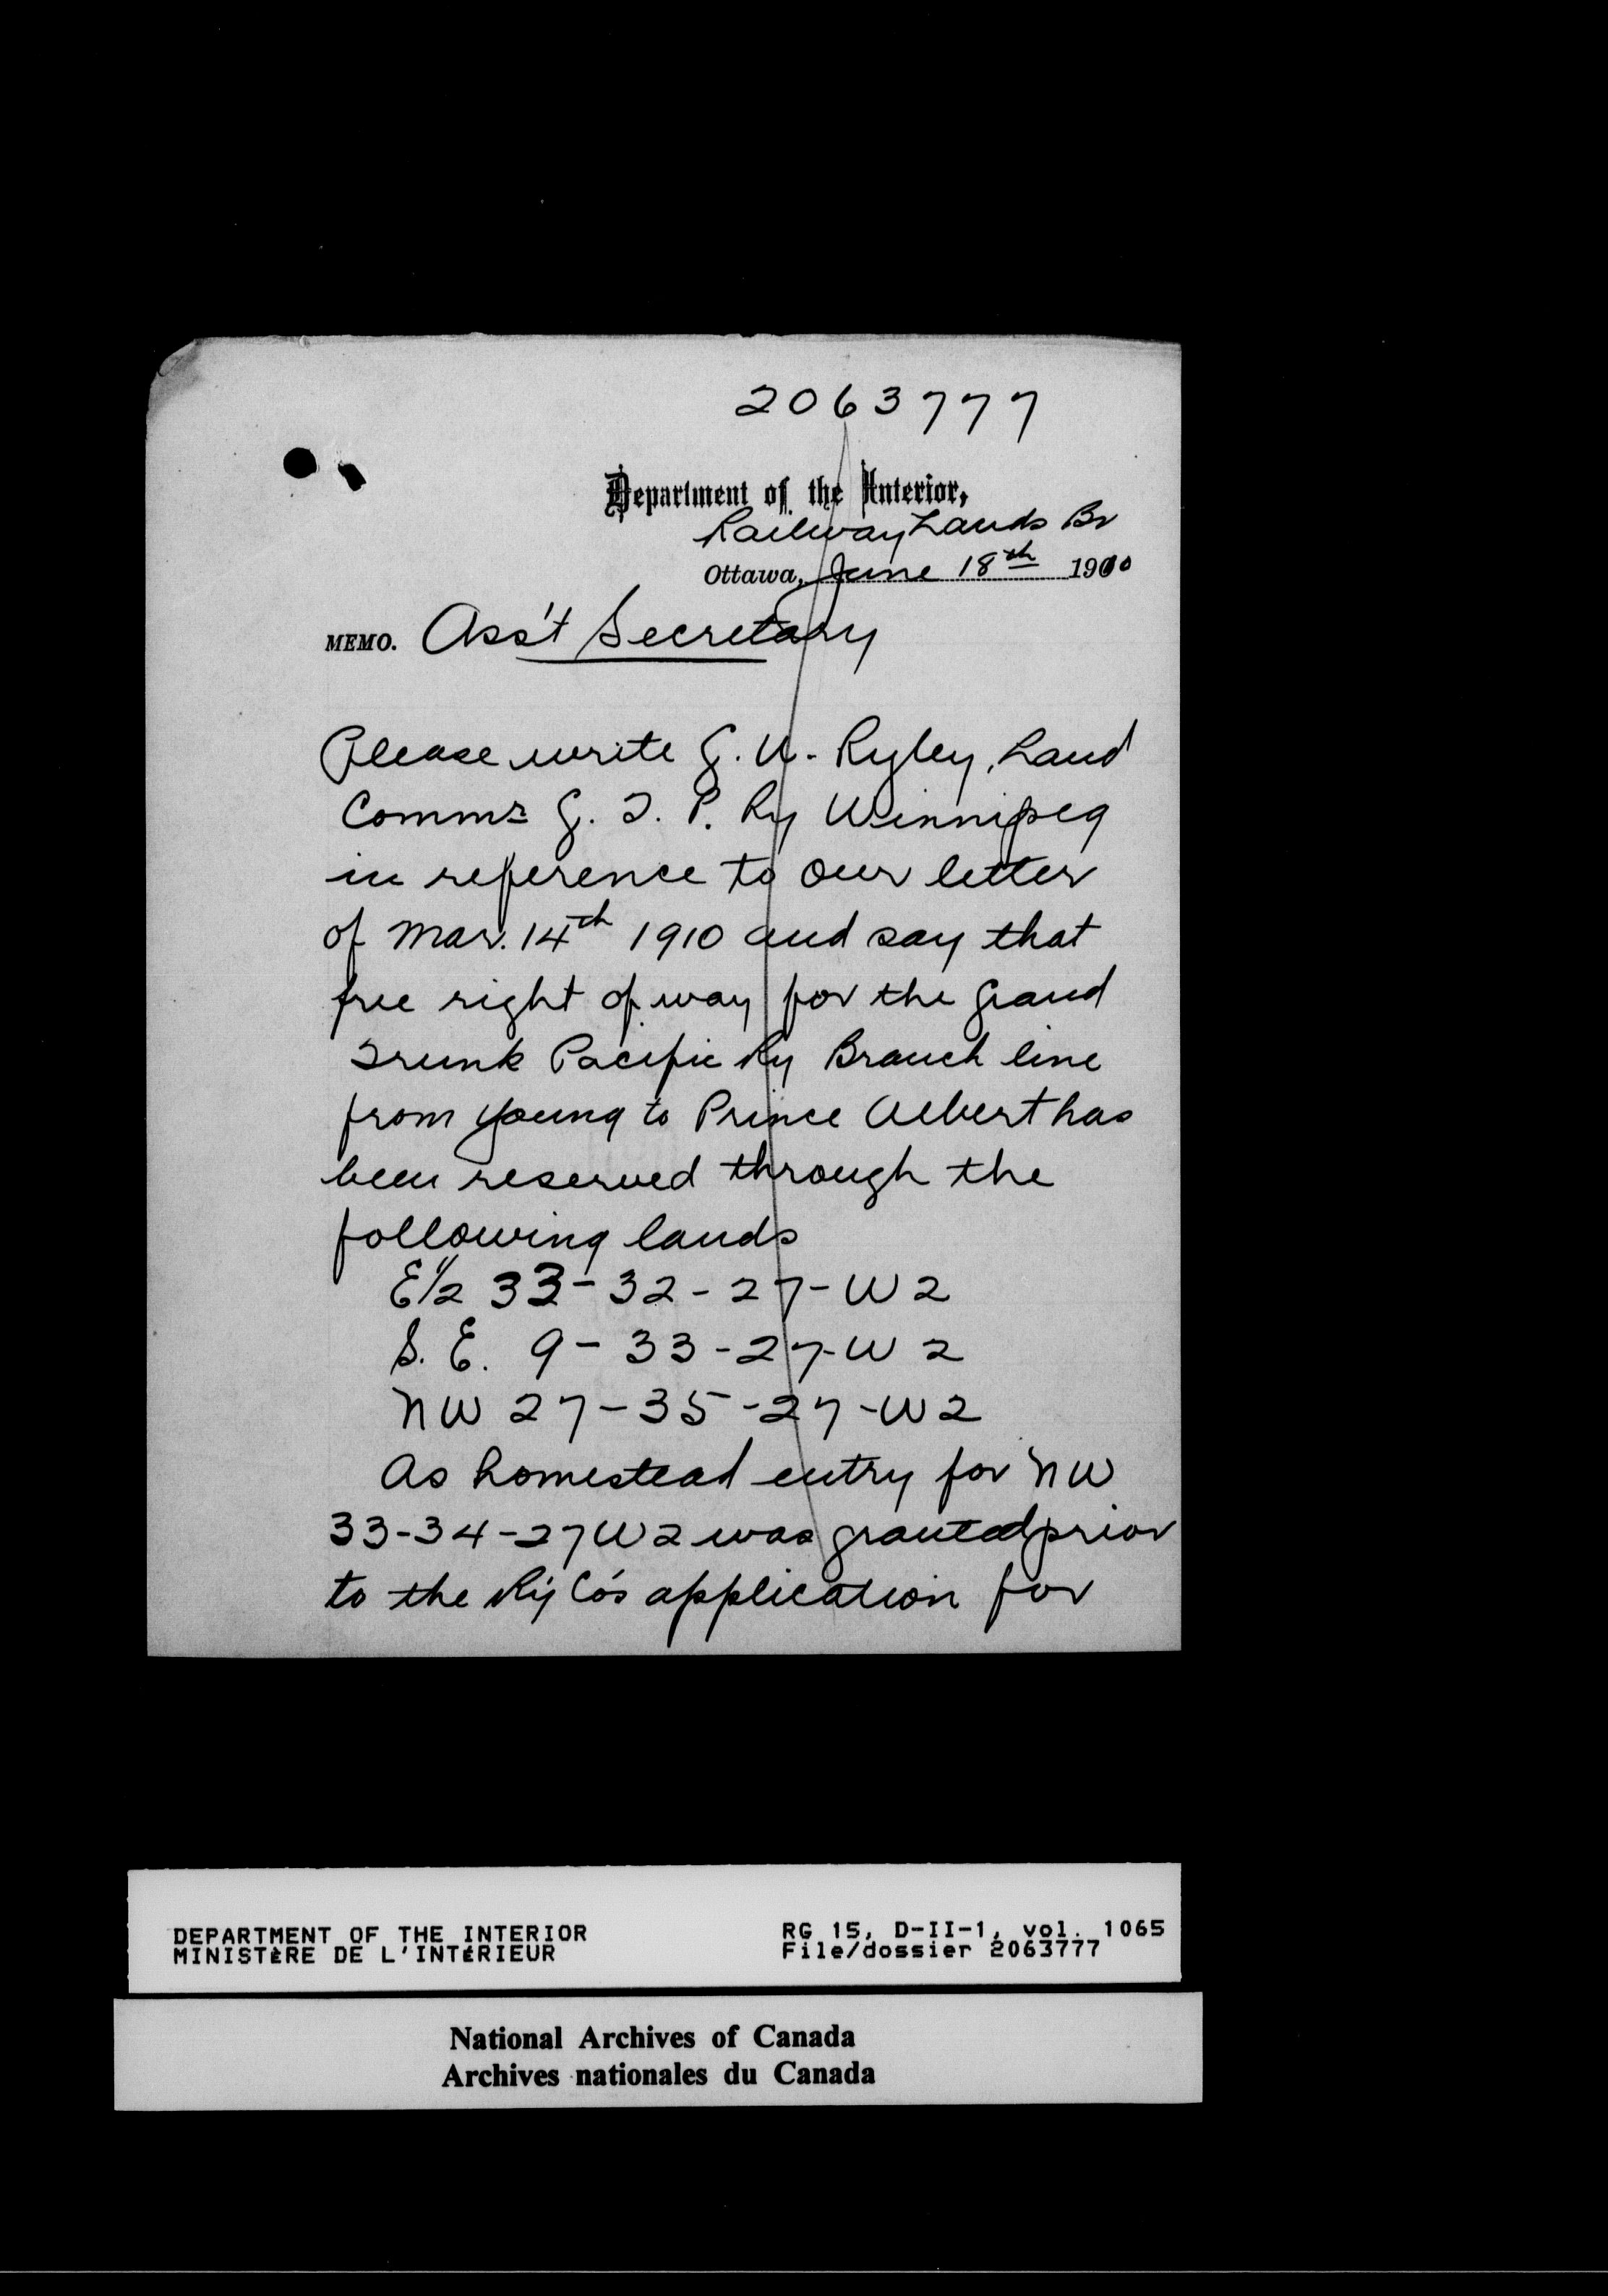 2063777
Department of the Interior,
Railway Lands Br
Ottawa, June 18th 1910
MEMO. Ass't Secretary
Please write G. U. Ryley, Land
Commr G. T. P. Ry Winnipeg
in reference to our letter
of Mar. 14th 1910 and say that
free right of way for the Grand
Trunk Pacific Ry Branch line
from Young to Prince Albert has
been reserved through the
following lands
E1/2 33-32-27-W2
S. E. 9-33-27-W2
NW 27-35-27-W2
As homestead entry for NW
33-34-27W2 was granted prior
to the Ry Co's application for
DEPARTMENT OF THE INTERIOR
MINISTÈRE DE L'INTÉRIEUR
RG 15, D-II-1, vol. 1065
File/dossier 2063777
National Archives of Canada
Archives nationales du Canada